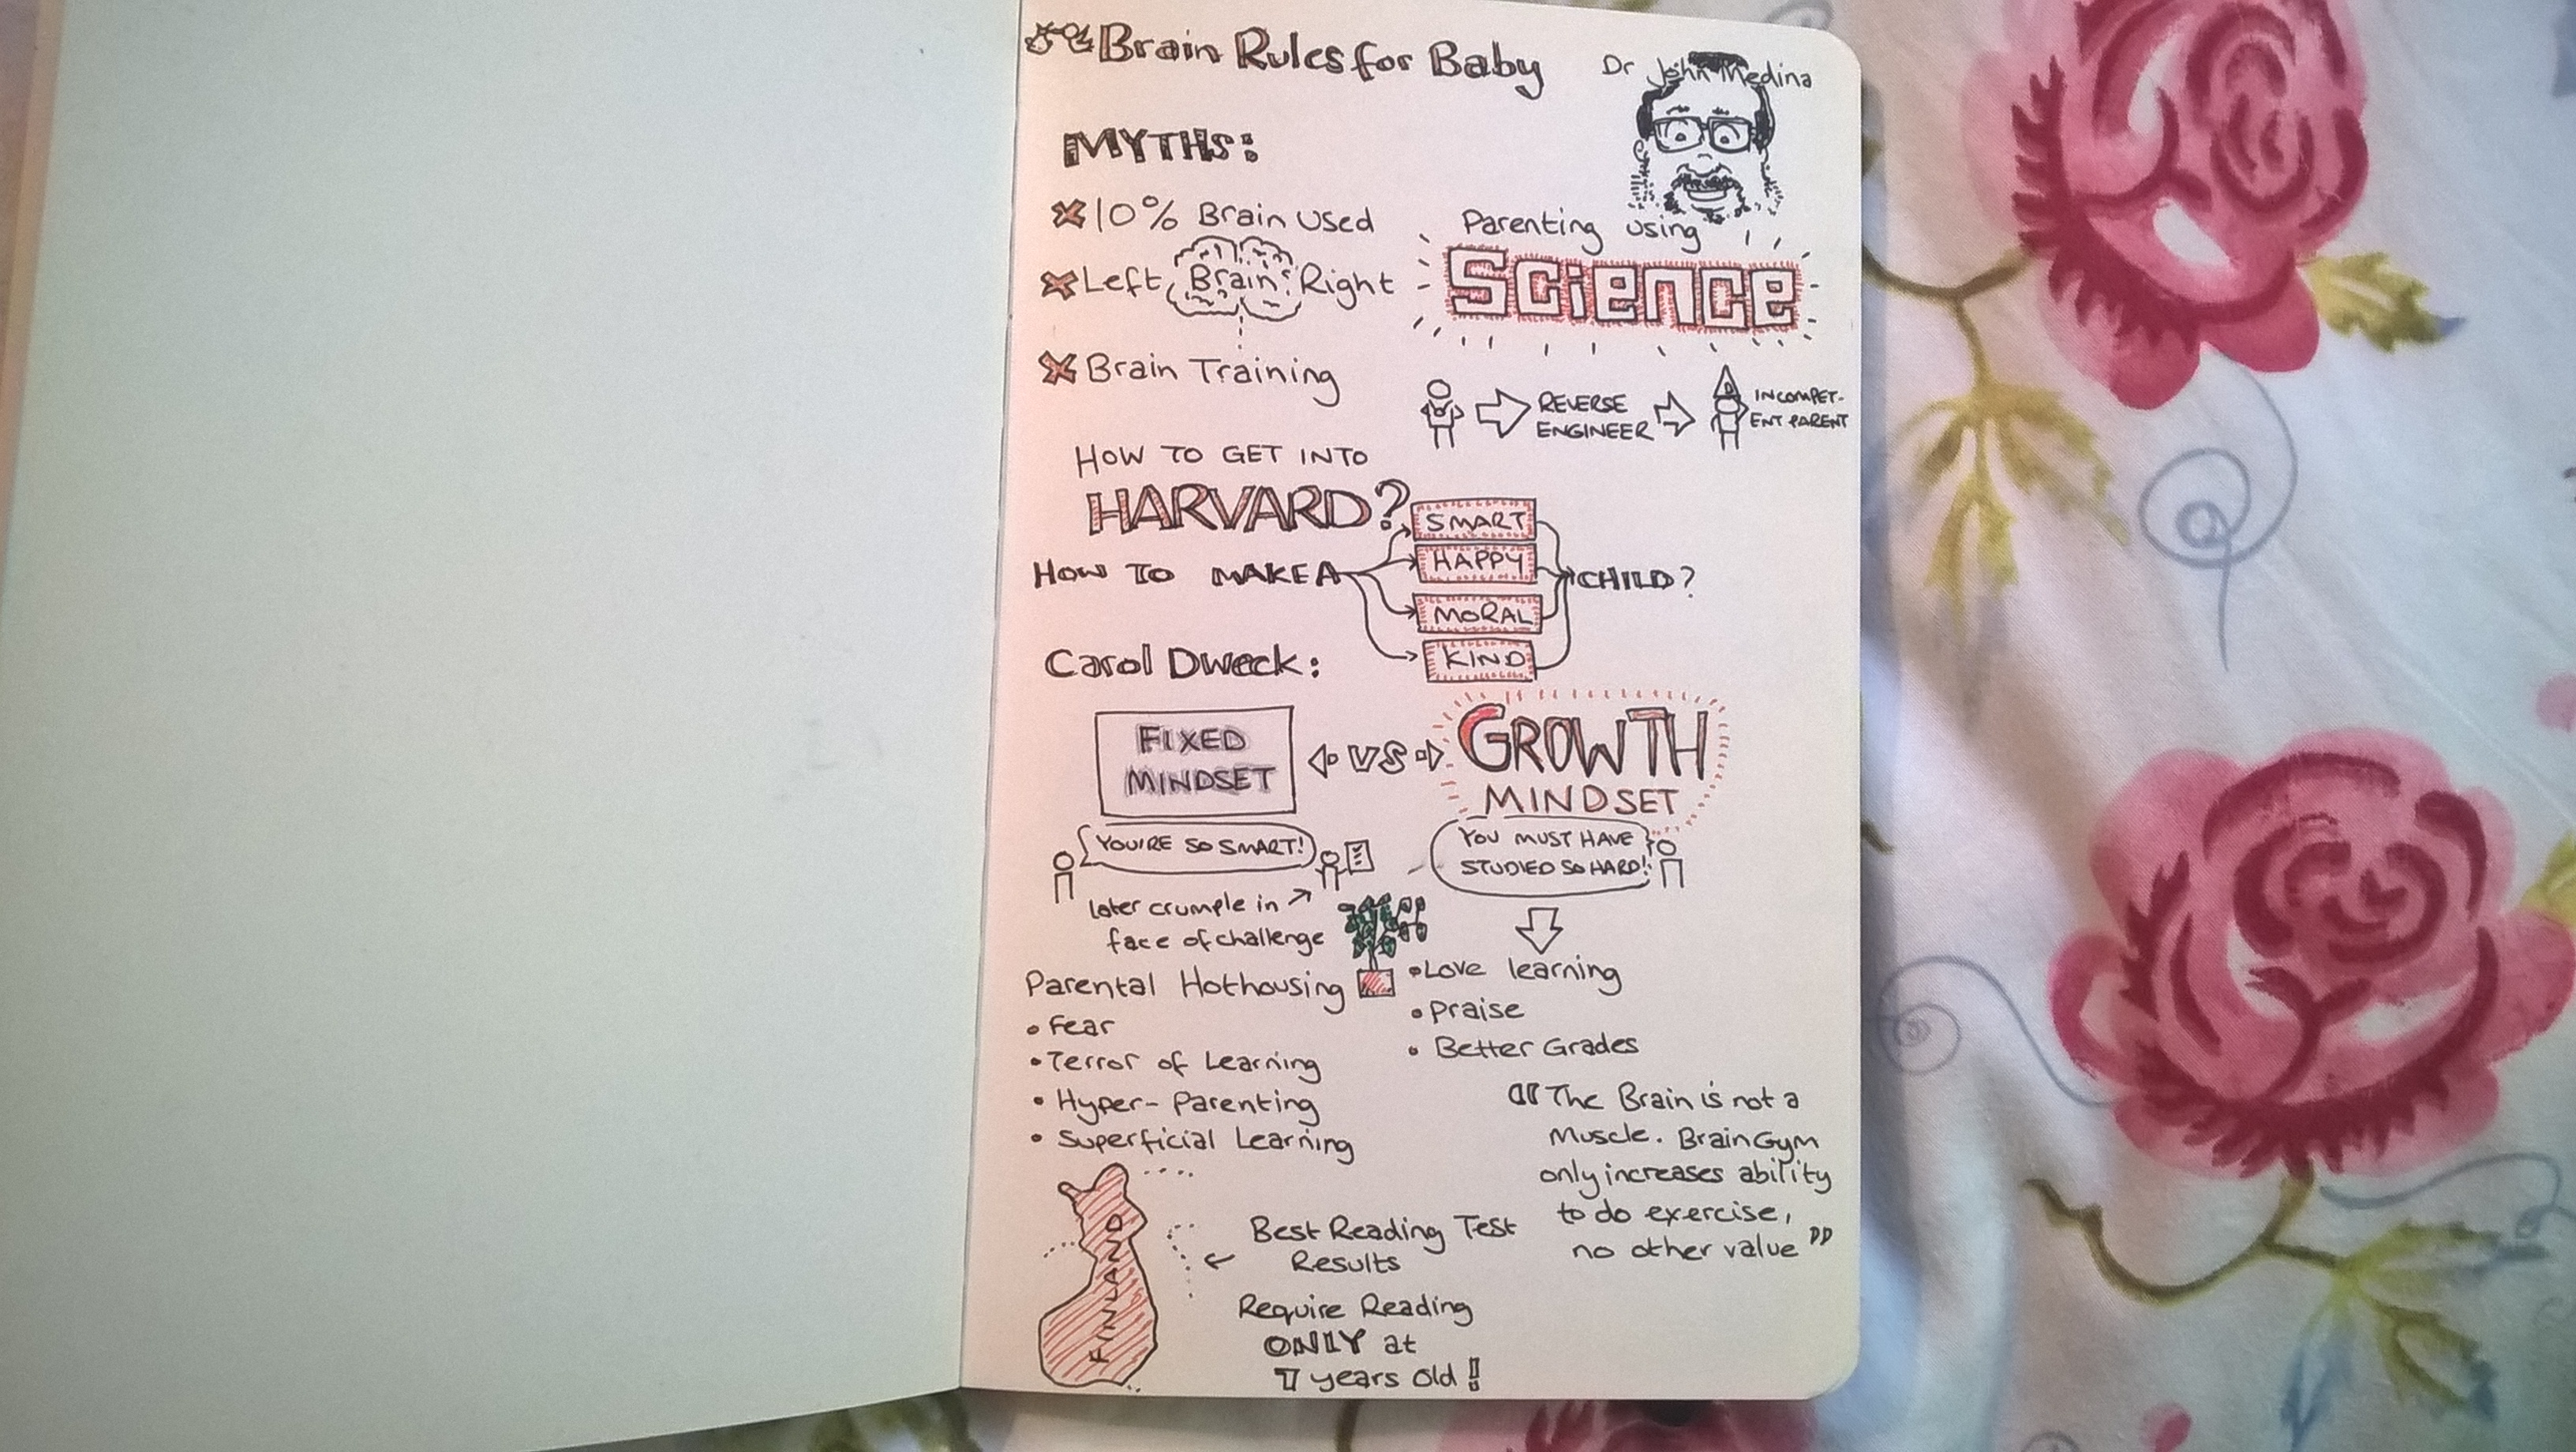 Brain Rules for Baby
Dr John Medina
MYTHS:
10% Brain Used
Left Brain Right
Brain Training
Parenting using
Science
REVERSE
ENGINEER
INCOMPET-
ENT PARENT
HOW TO GET INTO
HARVARD?
HOW TO MAKE A
SMART
HAPPY
MORAL
KIND
CHILD?
Carol Dweck:
FIXED
MINDSET
VS
GROWTH
MINDSET
YOU'RE SO SMART!
later crumple in
face of challenge
YOU MUST HAVE
STUDIED SO HARD!
Parental Hothousing
• Fear
• Terror of Learning
• Hyper-Parenting
• Superficial Learning
• Love learning
• Praise
• Better Grades
"The Brain is not a
Muscle. Brain Gym
only increases ability
to do exercise,
no other value"
FINLAND
Best Reading Test
Results
Require Reading
ONLY at
7 years old!